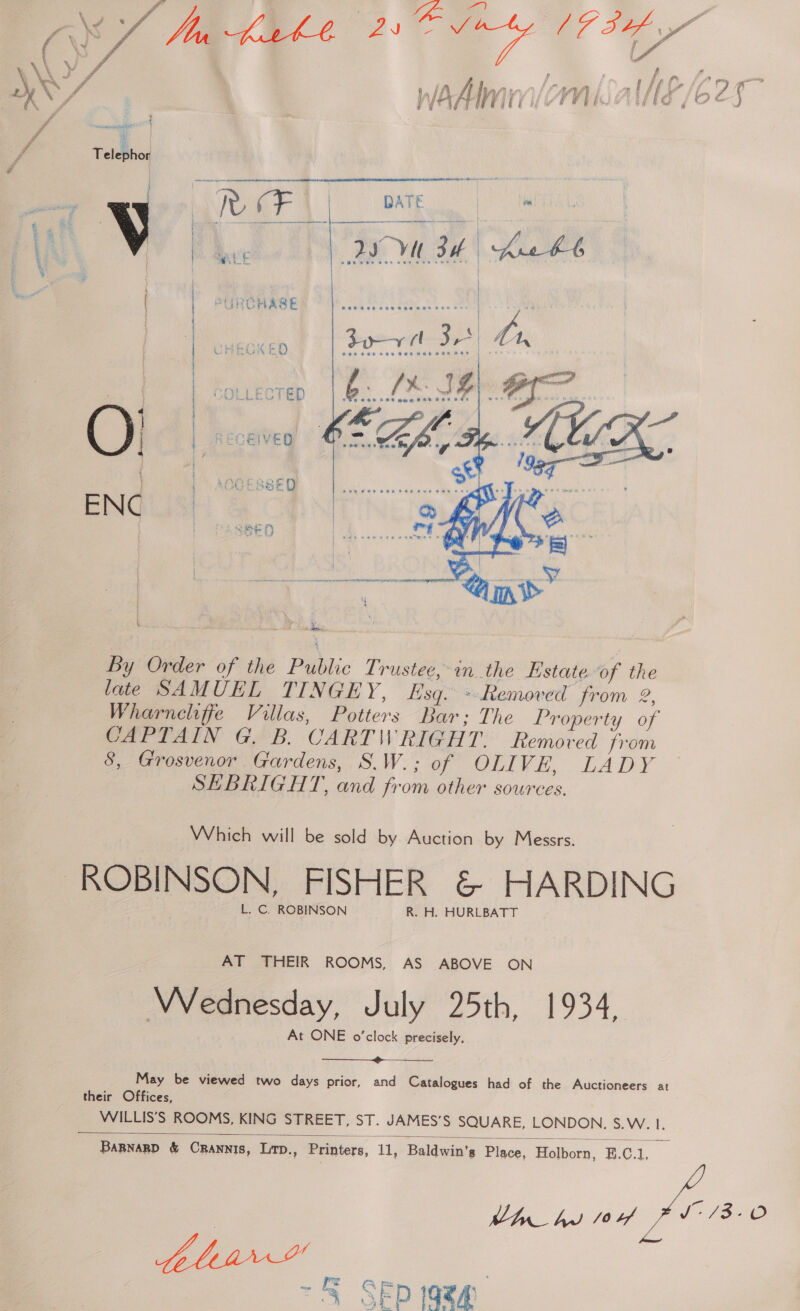 25th July 1934
WAHMM/CM/Sal/18/625
Telephon
W
REF DATE
SALE 25 VII 34
PURCHASE
CHECKED
COLLECTED
RECEIVED
ACCESSED
PASSED
ENC
SEP 1934
By Order of the Public Trustee, in the Estate of the
late SAMUEL TINGEY, Esq. - Removed from 2,
Wharncliffe Villas, Potters Bar; The Property of
CAPTAIN G. B. CARTWRIGHT. Removed from
8, Grosvenor Gardens, S.W.; of OLIVE, LADY
SEBRIGHT, and from other sources.
Which will be sold by Auction by Messrs.
ROBINSON, FISHER & HARDING
L. C. ROBINSON R. H. HURLBATT
AT THEIR ROOMS, AS ABOVE ON
Wednesday, July 25th, 1934,
At ONE o'clock precisely.
May be viewed two days prior, and Catalogues had of the Auctioneers at
their Offices,
WILLIS'S ROOMS, KING STREET, ST. JAMES'S SQUARE, LONDON, S.W. 1.
BARNARD & CRANNIS, LTD., Printers, 11, Baldwin's Place, Holborn, E.C.1.
104 £5-13-0
-5 SEP 1934